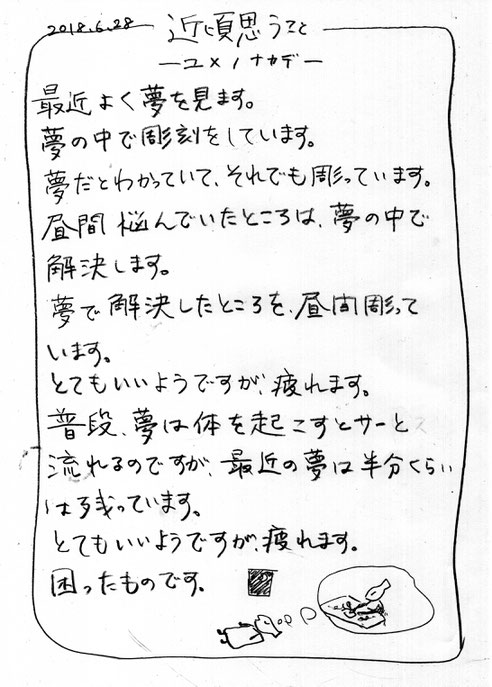 2018.6.28
近頃思うこと
ーユメノナカデー
最近よく夢を見ます。
夢の中で彫刻をしています。
夢だとわかっていて、それでも彫っています。
昼間悩んでいたところは、夢の中で
解決します。
夢で解決したところを、昼間彫って
います。
とてもいいようですが、疲れます。
普段、夢は体を起こすとサーと
流れるのですが、最近の夢は半分くらい
は残っています。
とてもいいようですが、疲れます。
困ったものです。